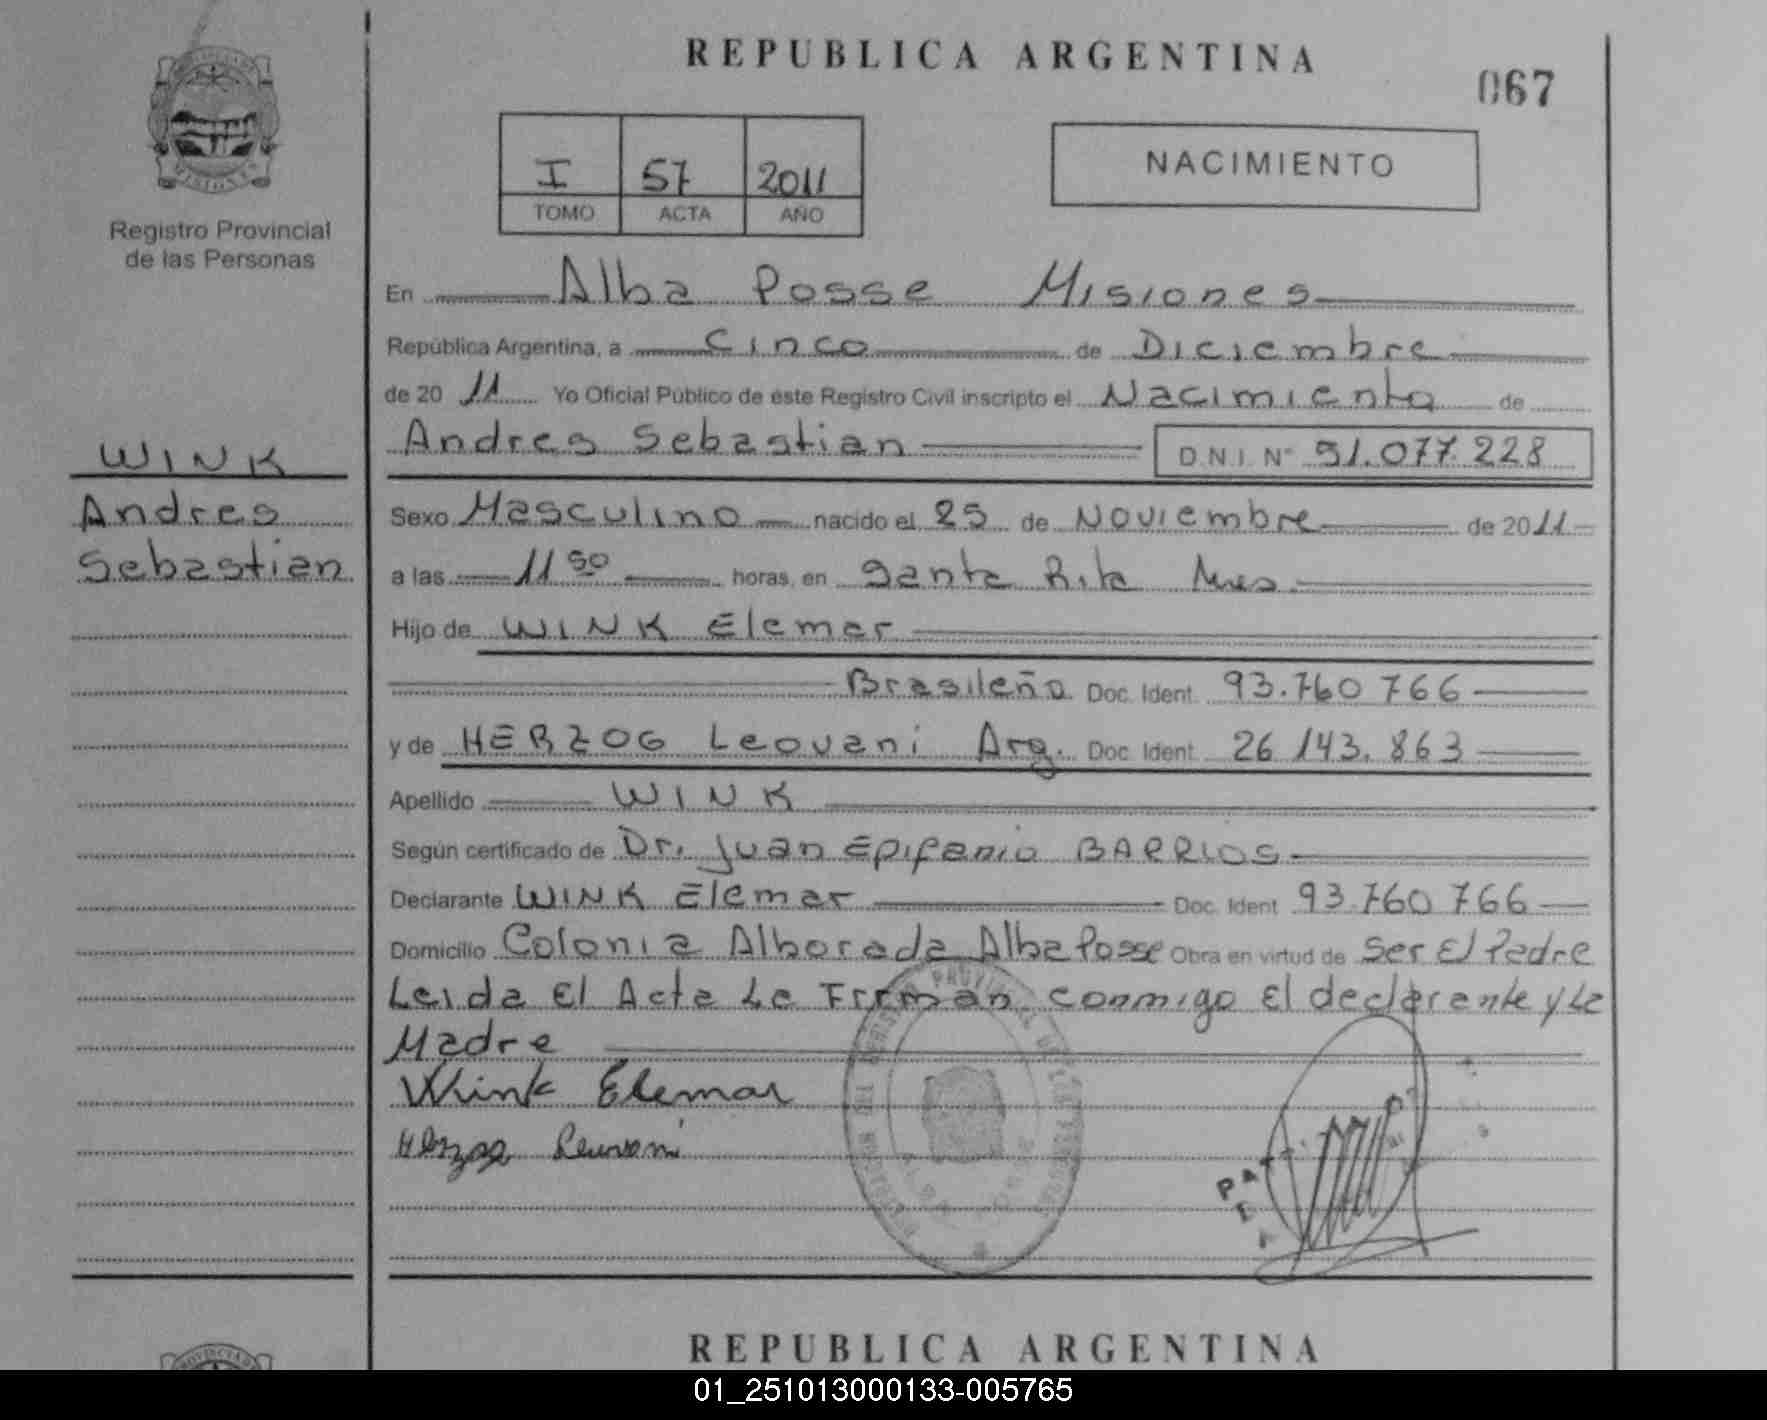 REPUBLICA ARGENTINA
067
I 57 2011
TOMO ACTA AÑO
NACIMIENTO
MISIONES
Registro Provincial
de las Personas
WINK
Andres
Sebastian
En Alba Posse Misiones
República Argentina, a Cinco de Diciembre
de 20 11 Yo Oficial Público de este Registro Civil inscripto el Nacimiento de
Andres Sebastian D.N.I. Nº 51.077.228
Sexo Masculino nacido el 25 de Noviembre de 2011
a las 11 50 horas, en Santa Rita Mnes
Hijo de WINK Elemar
Brasileño Doc. Ident. 93.760 766
y de HERZOG Leovani Arg. Doc. Ident. 26 143.863
Apellido WINK
Según certificado de Dr. Juan Epifanio BARRIOS
Declarante WINK Elemar Doc. Ident 93.760 766
Domicilio Colonia Alborada Alba Posse Obra en virtud de Ser El Padre
Leida El Acta La Firman conmigo El declarante y La
Madre
Wink Elemar
Herzog Leovani
REPUBLICA ARGENTINA
01_251013000133-005765